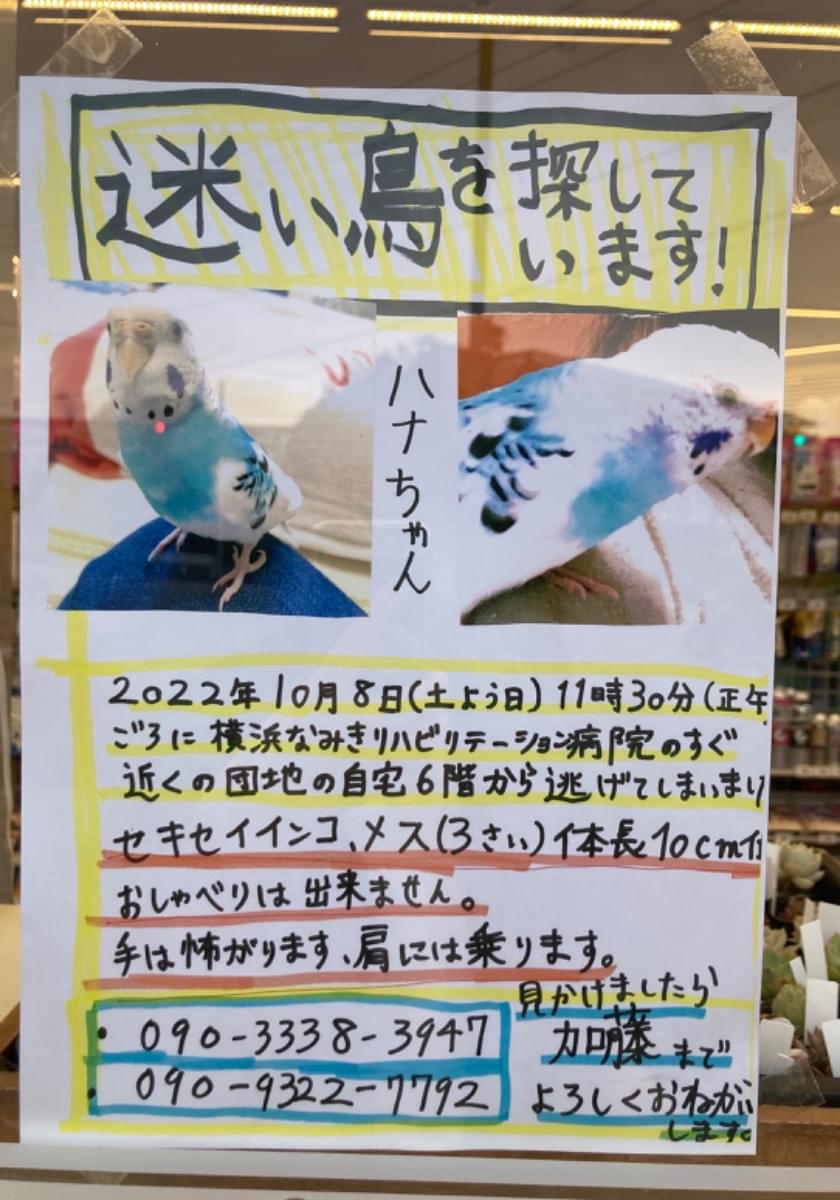 迷い鳥を探して
います!
ハナちゃん
2022年10月8日(土よう日)11時30分(正午
ごろに横浜なみきリハビリテーション病院のすぐ
近くの団地の自宅6階から逃げてしまいまし
セキセイインコ、メス(3さい)体長10cm位
おしゃべりは出来ません。
手は怖がります、肩には乗ります。
見かけましたら
加藤まで
よろしくおねがい
します。
・090-3338-3947
・090-9322-7792